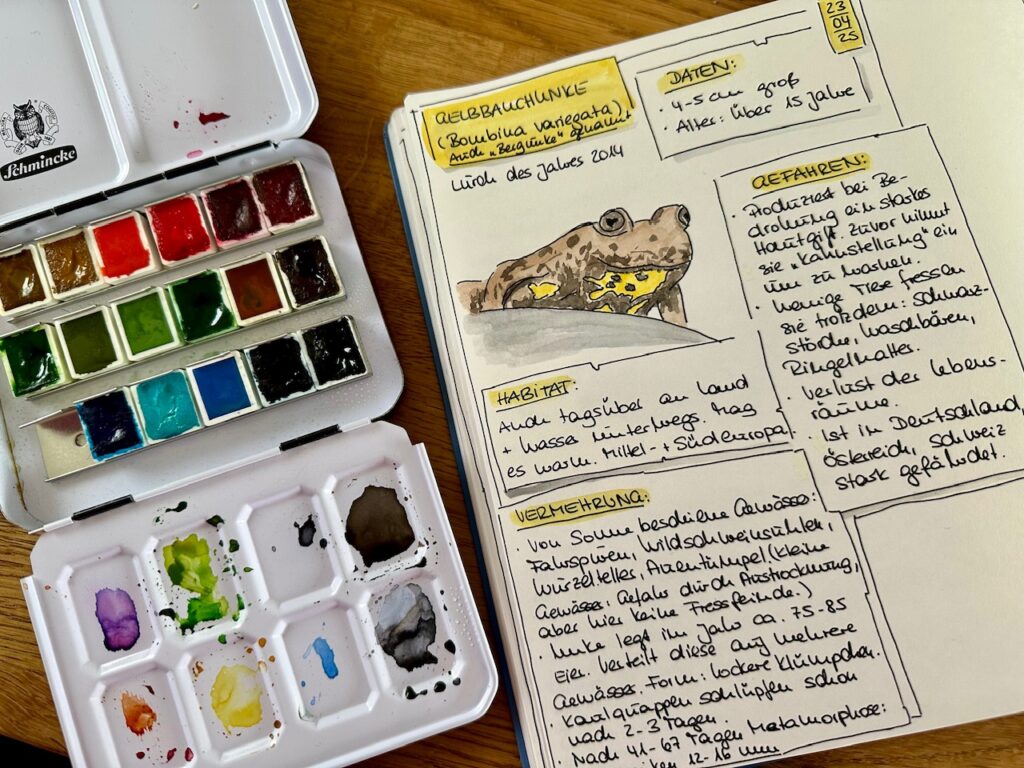 Schmincke
23
04
25
GELBBAUCHUNKE
(Bombina variegata)
Auch „Bergunke" genannt
Lurch des Jahres 2014
DATEN:
· 4-5 cm groß
· Alter: über 15 Jahre
GEFAHREN:
· Produziert bei Be-
drohung ein starkes
Hautgift. Zuvor nimmt
sie „Kahnstellung" ein
um zu warnen.
· Wenige Tiere fressen
sie trotzdem: Schwarz-
störche, Waschbären,
Ringelnatter.
· Verlust der Lebens-
räume.
· Ist in Deutschland,
Österreich, Schweiz
stark gefährdet.
HABITAT:
Auch tagsüber an Land
+ Wasser unterwegs. Mag
es warm. Mittel- + Südeuropa.
VERMEHRUNG:
· Von Sonne beschiene Gewässer:
Fahrspuren, Wildschweinsuhlen,
Wurzelteller, Auentümpel. (kleine
Gewässer. Gefahr durch Austrocknung,
aber hier keine Fressfeinde.)
· Unke legt im Jahr ca. 75-85
Eier. Verteilt diese auf mehrere
Gewässer. Form: lockere Klümpchen.
· Kaulquappen schlüpfen schon
nach 2-3 Tagen.
Nach 41-67 Tagen Metamorphose:
12-16 mm